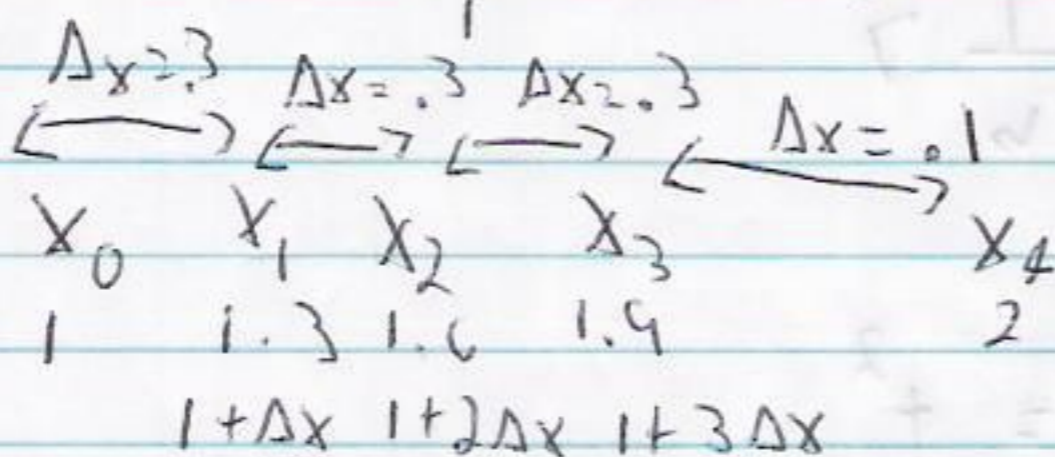 Δx=.3 Δx=.3 Δx=.3 Δx=.1
x₀ x₁ x₂ x₃ x₄
1 1.3 1.6 1.9 2
1+Δx 1+2Δx 1+3Δx